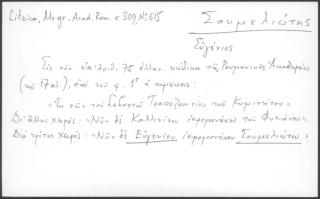 Litzica, Ms. gr. Acad. Rom. σ. 309, Nº 615
Σουμελιώτης
Εὐγένιος
Εἰς τὸν ὑπ' ἀριθ. 75 ἑλλην. κώδικα τῆς Ρουμανικῆς Ἀκαδημίας
(τοῦ 17 αἰ.), ἐπὶ τοῦ φ. 1ʳ ὁ σημείωσις:
"Ἐκ τῶν τοῦ Σεβαστοῦ Τραπεζουντίου τοῦ Κυμινήτου"
Δι' ἄλλης χειρός: "Νῦν δὲ Καλλινίκου ἱερομονάχου τοῦ Φυτιάνου".
Διὰ τρίτης χειρός: "Νῦν δὲ Εὐγενίου ἱερομονάχου Σουμελιώτου"